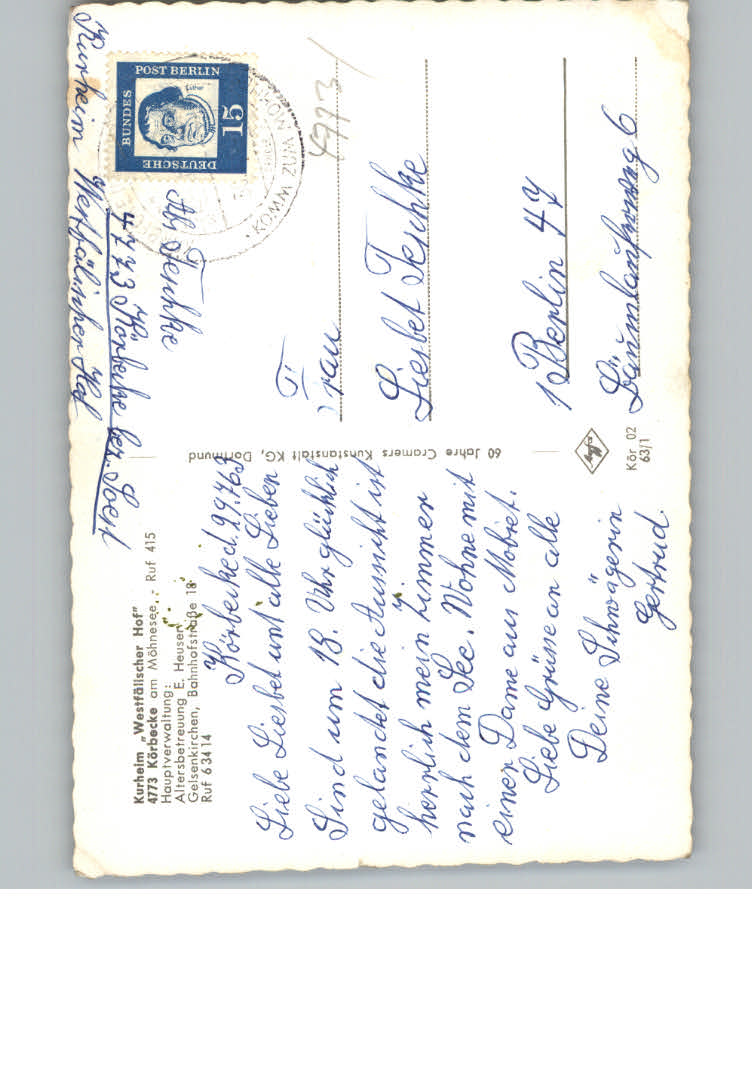 Kurheim „Westfälischer Hof"
4773 Körbecke am Möhnesee - Ruf 415
Hauptverwaltung:
Altersbetreuung E. Heusen
Gelsenkirchen, Bahnhofstraße 18
Ruf 6 34 14
Körbecke d. 29.7.63
Liebe Liesbet und alle Lieben
Sind um 13. Uhr glücklich
gelandet die Aussicht ist
herrlich mein Zimmer
nach dem See. Wohne mit
einer Dame aus Mobiet.
Liebe Grüsse an alle
Deine Schwägerin
Gertrud.
60 Jahre Cramers Kunstanstalt KG, Dortmund
Agfa
Kör 02
63/1
Kurheim Westfälischer Hof
4773 Körbecke bez. Soest
Ab Teschke
DEUTSCHE BUNDES POST BERLIN
15
Luther
KOMM ZUM
4773
Frau
Liesbet Teschke
1 Berlin 47
6